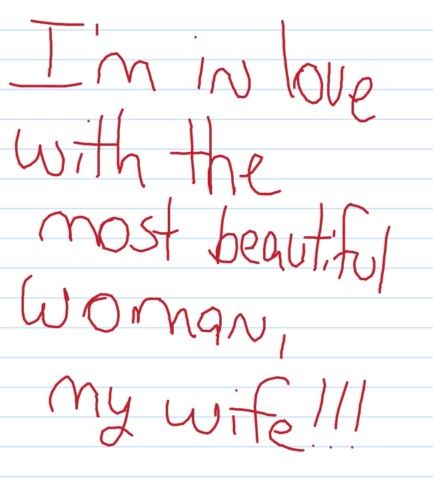 I'm in love
with the
most beautiful
woman,
my wife!!!